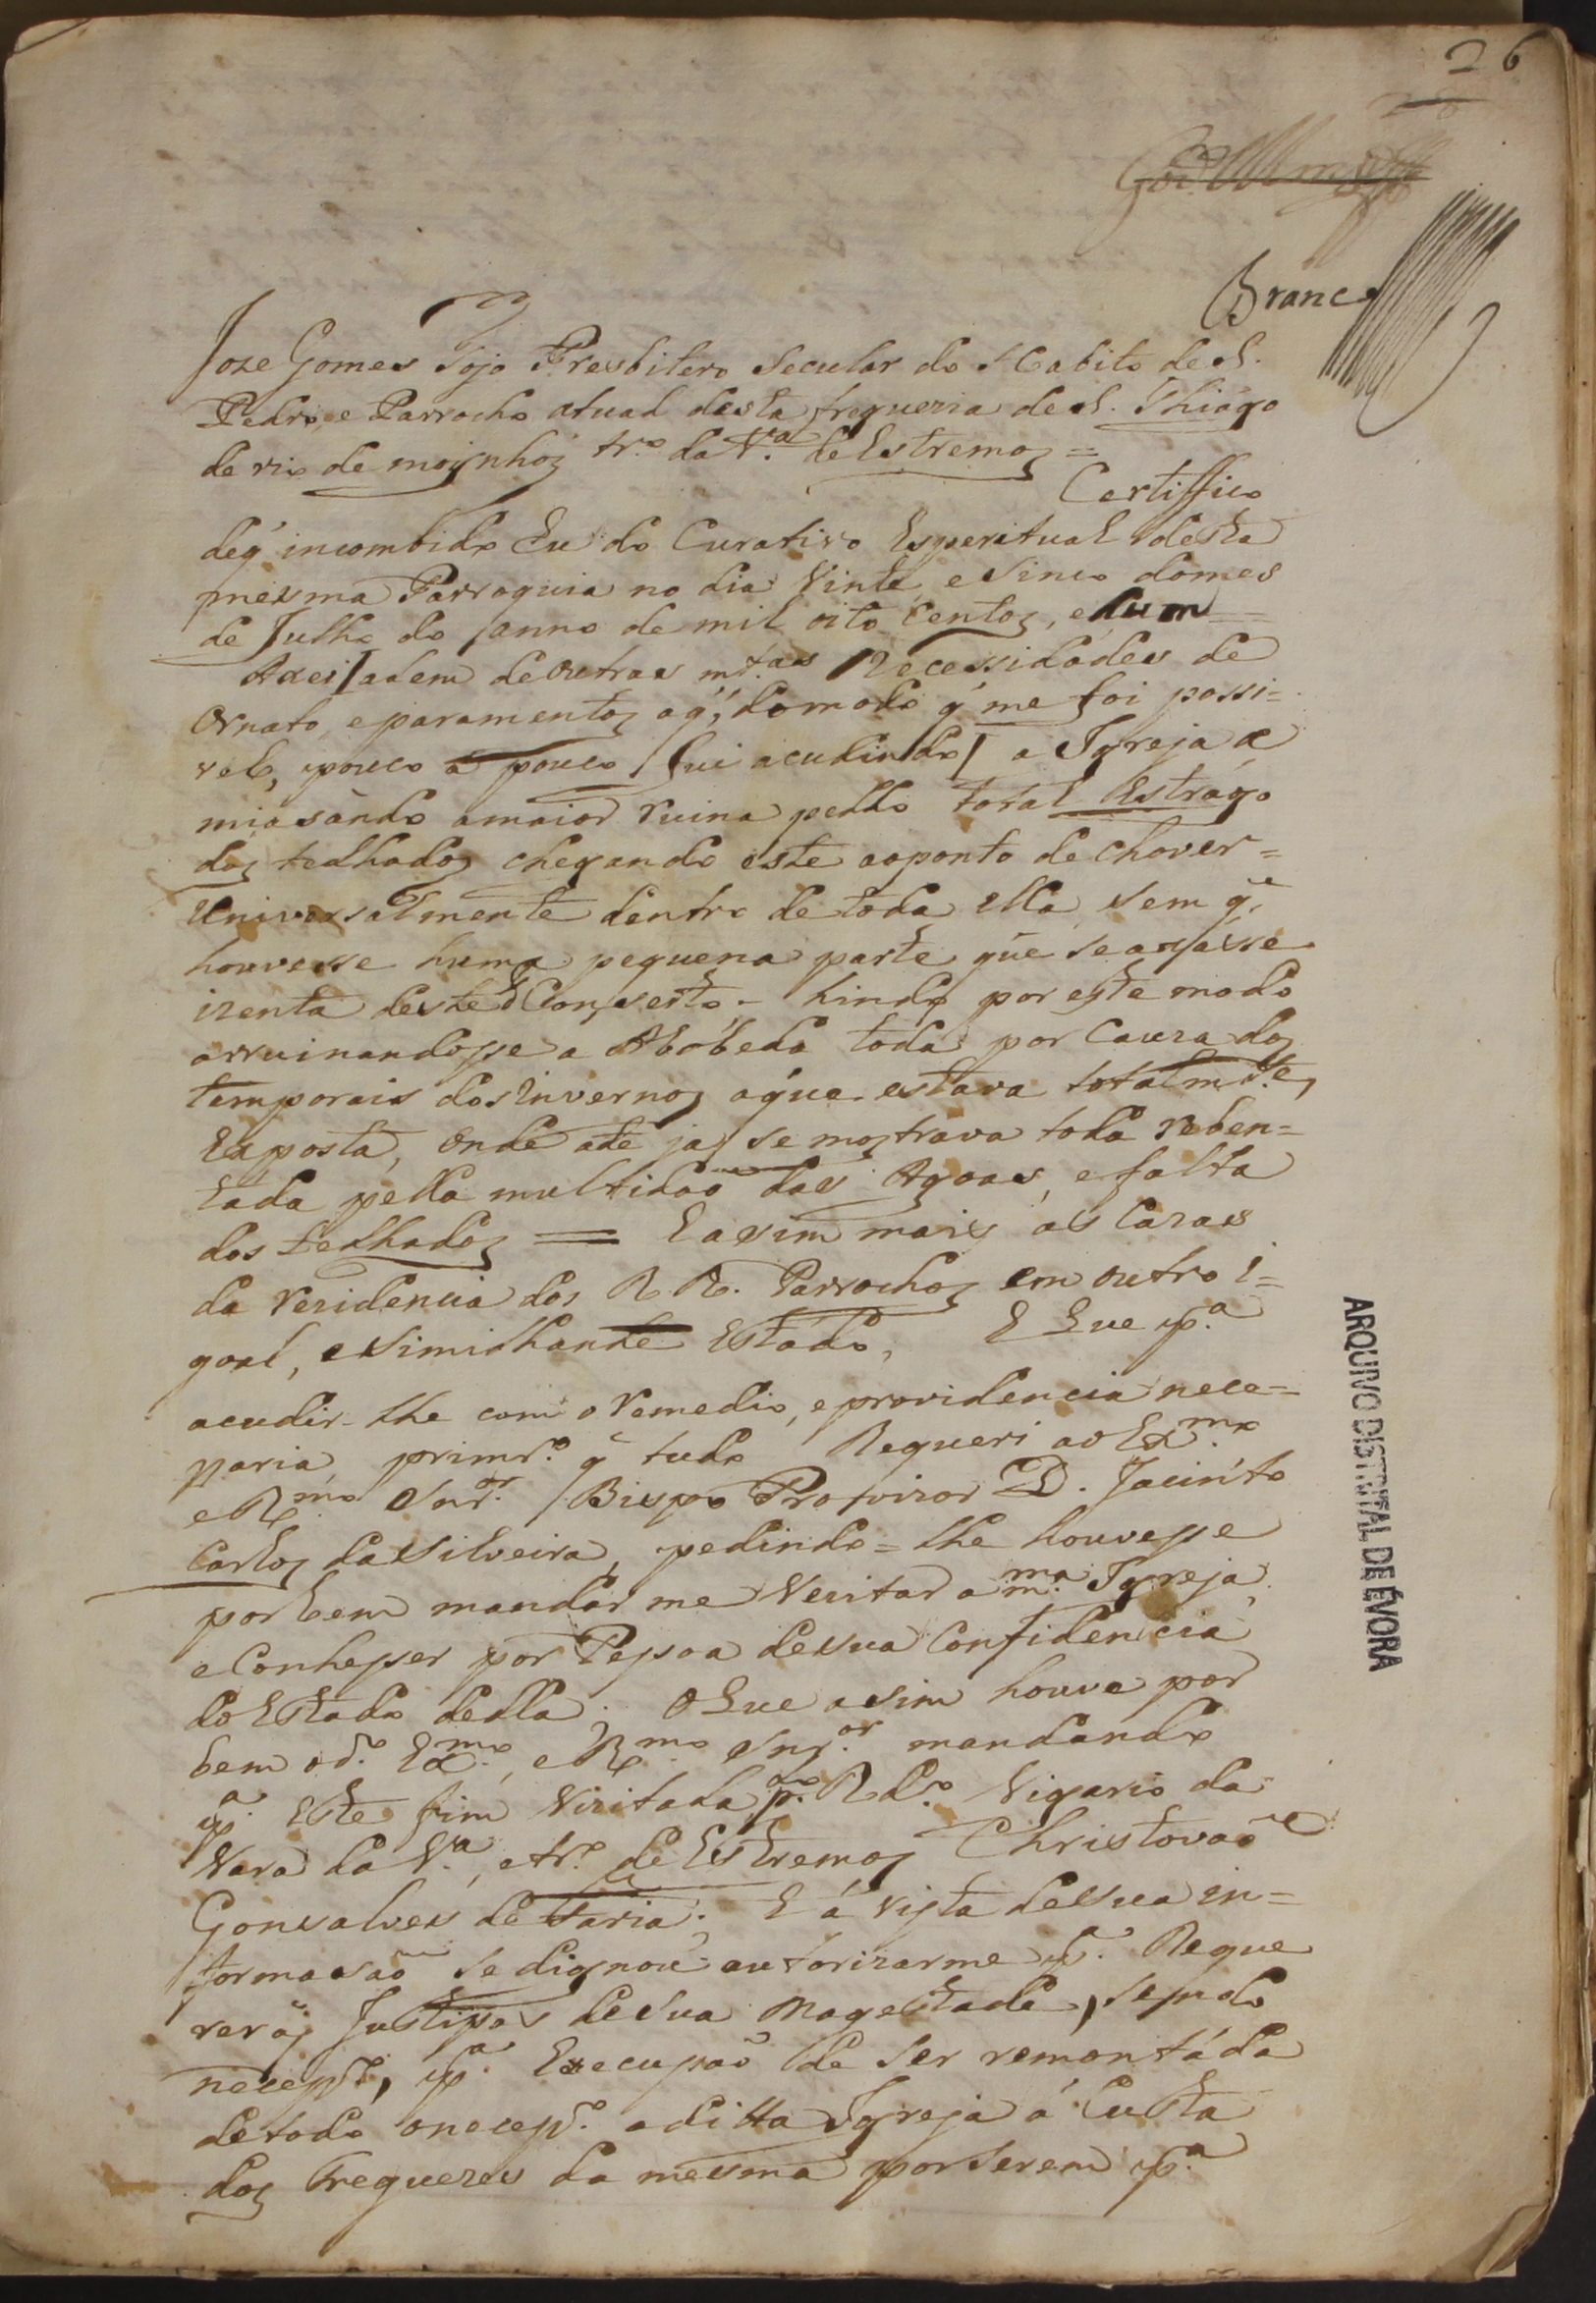 26
Branco
Joze Gomes Tojo Presbitero Secular do Habito de S.
Pedro, e Parrocho atual desta freguezia de S. Thiágo
de rio de moynhos tr.º da V.ª de Estremos =
Certiffico
deq' incombido Eu do Curativo Esperitual desta
mesma Parroquia no dia Vinte, e Sinco domes
de Julho do anno de mil oito Centos, e hum =
Axei / alem de Outras m.tas Necessidades de
Ornato, e paramentos aq', domodo q' me foi possi=
vel, pouco a pouco / fui acudindo / a Igreja a
miasàndo amaior ruina pello total Estrágo
dos telhados chegando este aoponto de Chover=
Universalmente dentro de toda ella, sem q.e
houvesse huma pequena parte que Se axásse
izenta deste Conserto - hindo por este modo
arruinandosse a Abóbeda toda por Cauza dos
temporais dosinvernos aque estava totalm.te,
Exposta, Onde até ja se mostrava toda reben=
tada pella multidaõ das Agoas, e falta
dos telhados = E asim mais as Cazas
da rezidencia dos R R. Parrochos em outro i=
goal, e Similhante Estádo, E Que p.ª
acudir-lhe com o remedio, e providencia nece=
ssaria, primr.º q' tudo Requeri ao Ex.mo
e R.mo Snr.' Bispo Provizor D. Jacinto
Carlos da Silveira, pedindo=lhe houvesse
por bem mandar me Vezitar a m.ma Igreja,
e Conhesser por Pessoa desua Confidencia
do Estado della; O Que asim houve por
bem o d.º Ex.mo, e R.mo Snr.or mandando
p.ª Este fim Vizitada p.lo R.do Vigario da
Vara da V.ª, e tr.º de Estremos Christovaõ
Gonsalves de Faria; E á vista desua in=
formasaõ Se dignou autorizarme p.ª Reque
rer ás Justiças de Sua Magestade, sendo
necess.º, p.ª Execuçaõ de Ser remontáda
detodo o necess.º a ditta Igreja á Custa
dos Freguezes da mesma por Serem p.ª
ARQUIVO DISTRITAL DE ÉVORA